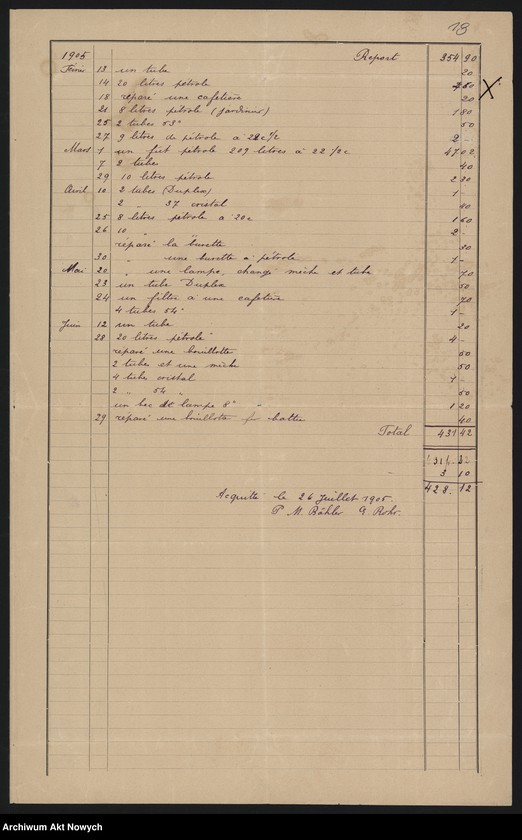 18
1905 Report 354 90
Février 13 un tube 20
14 20 litres pétrole
18 réparé une cafetière 20
21 8 litres pétrole (jardinier) 1 80
25 2 tubes 53" 50
27 9 litres de pétrole a 22c ½ 2 -
Mars 1 un fut pétrole 209 litres à 22 ½ c 47 02
7 2 tubes 40
29 10 litres pétrole 2 20
Avril 10 2 tubes (Duplex) 1 -
2 " 37 cristal 40
25 8 litres pétrole a 20c 1 60
26 10 " 2 -
réparé la burette 30
30 " une burette a pétrole 1 -
Mai 20 " une lampe, changé mèche et tube 70
23 un tube Duplex 50
24 un filtre à une cafetière 70
4 tubes 54" 1 -
Juin 12 un tube 20
28 20 litres pétrole 4 -
réparé une bouillotte 50
2 tubes et une mèche 50
4 tubes cristal 1 -
2 " 54 " 50
un bec de lampe 8" 1 20
29 réparé une bouillotte 40
Total 431 42
3 10
428. 12
Acquitté le 26 Juillet 1905.
P. M. Bähler G. Rohr.
Archiwum Akt Nowych